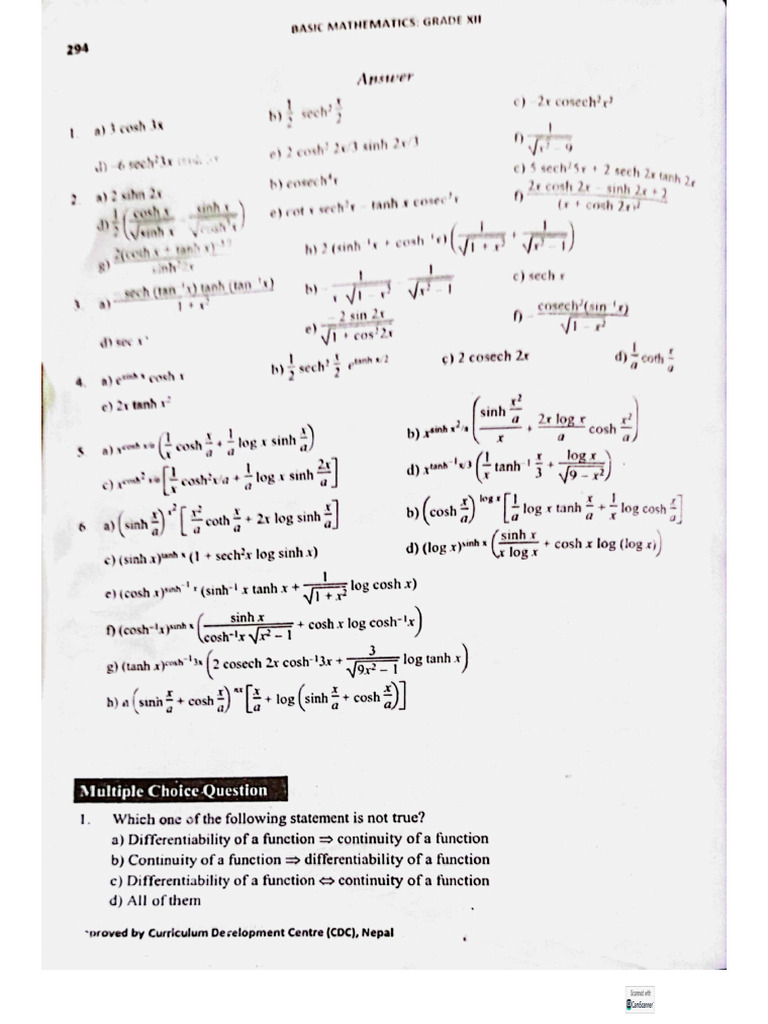 BASIC MATHEMATICS: GRADE XII
294
Answer
1. a) 3 cosh 3x b) 1/2 sech² x/2 c) –2x cosech²x²
d) –6 sech²3x e) 2 cosh² 2x/3 sinh 2x/3 f) 1/√(x² – 9)
2. a) 2 sihn 2x b) cosech⁴x c) 5 sech²5x + 2 sech 2x tanh 2x
d) 1/2 (cosh x/√sinh x – sinh x/√cosh³x) e) cot x sech²x – tanh x cosec²x f) (2x cosh 2x – sinh 2x + 2)/(x + cosh 2x)²
g) h) 2 (sinh⁻¹x + cosh⁻¹x) (1/√(1 + x²) + 1/√(x² – 1))
3. a) – sech (tan⁻¹x) tanh (tan⁻¹x)/(1 + x²) b) – 1/(x √(1 – x²)) – 1/√(x² – 1) c) sech x
d) sec x e) –2 sin 2x/√(1 + cos²2x) f) – cosech²(sin⁻¹x)/√(1 – x²)
4. a) e^(sinh x) cosh x b) 1/2 sech² x/2 e^(tanh x/2) c) 2 cosech 2x d) 1/a coth x/a
e) 2x tanh x²
5. a) x^(cosh x/a) (1/x cosh x/a + 1/a log x sinh x/a) b) x^(sinh x²/a) (sinh x²/a / x + 2x log x/a cosh x²/a)
c) x^(cosh² x/a) [1/x cosh²x/a + 1/a log x sinh 2x/a] d) x^(tanh⁻¹x/3) (1/x tanh⁻¹ x/3 + log x/√(9 – x²))
6 a) (sinh x/a)^(x²) [x²/a coth x/a + 2x log sinh x/a] b) (cosh x/a)^(log x) [1/a log x tanh x/a + 1/x log cosh x/a]
c) (sinh x)^(tanh x) (1 + sech²x log sinh x) d) (log x)^(sinh x) (sinh x/(x log x) + cosh x log (log x))
e) (cosh x)^(sinh⁻¹x) (sinh⁻¹ x tanh x + 1/√(1 + x²) log cosh x)
f) (cosh⁻¹x)^(sinh x) (sinh x/(cosh⁻¹x √(x² – 1)) + cosh x log cosh⁻¹x)
g) (tanh x)^(cosh⁻¹3x) (2 cosech 2x cosh⁻¹3x + 3/√(9x² – 1) log tanh x)
h) n (sinh x/a + cosh x/a)^(nx) [x/a + log (sinh x/a + cosh x/a)]
Multiple Choice Question
1. Which one of the following statement is not true?
a) Differentiability of a function ⇒ continuity of a function
b) Continuity of a function ⇒ differentiability of a function
c) Differentiability of a function ⇔ continuity of a function
d) All of them
proved by Curriculum Development Centre (CDC), Nepal
Scanned with
CamScanner